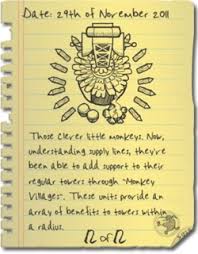 Date: 29th of November 2011
Those clever little monkeys. Now,
understanding supply lines, they've
been able to add support to their
regular towers through "Monkey
Villages". These units provide an
array of benefits to towers within
a radius.
12 of 12